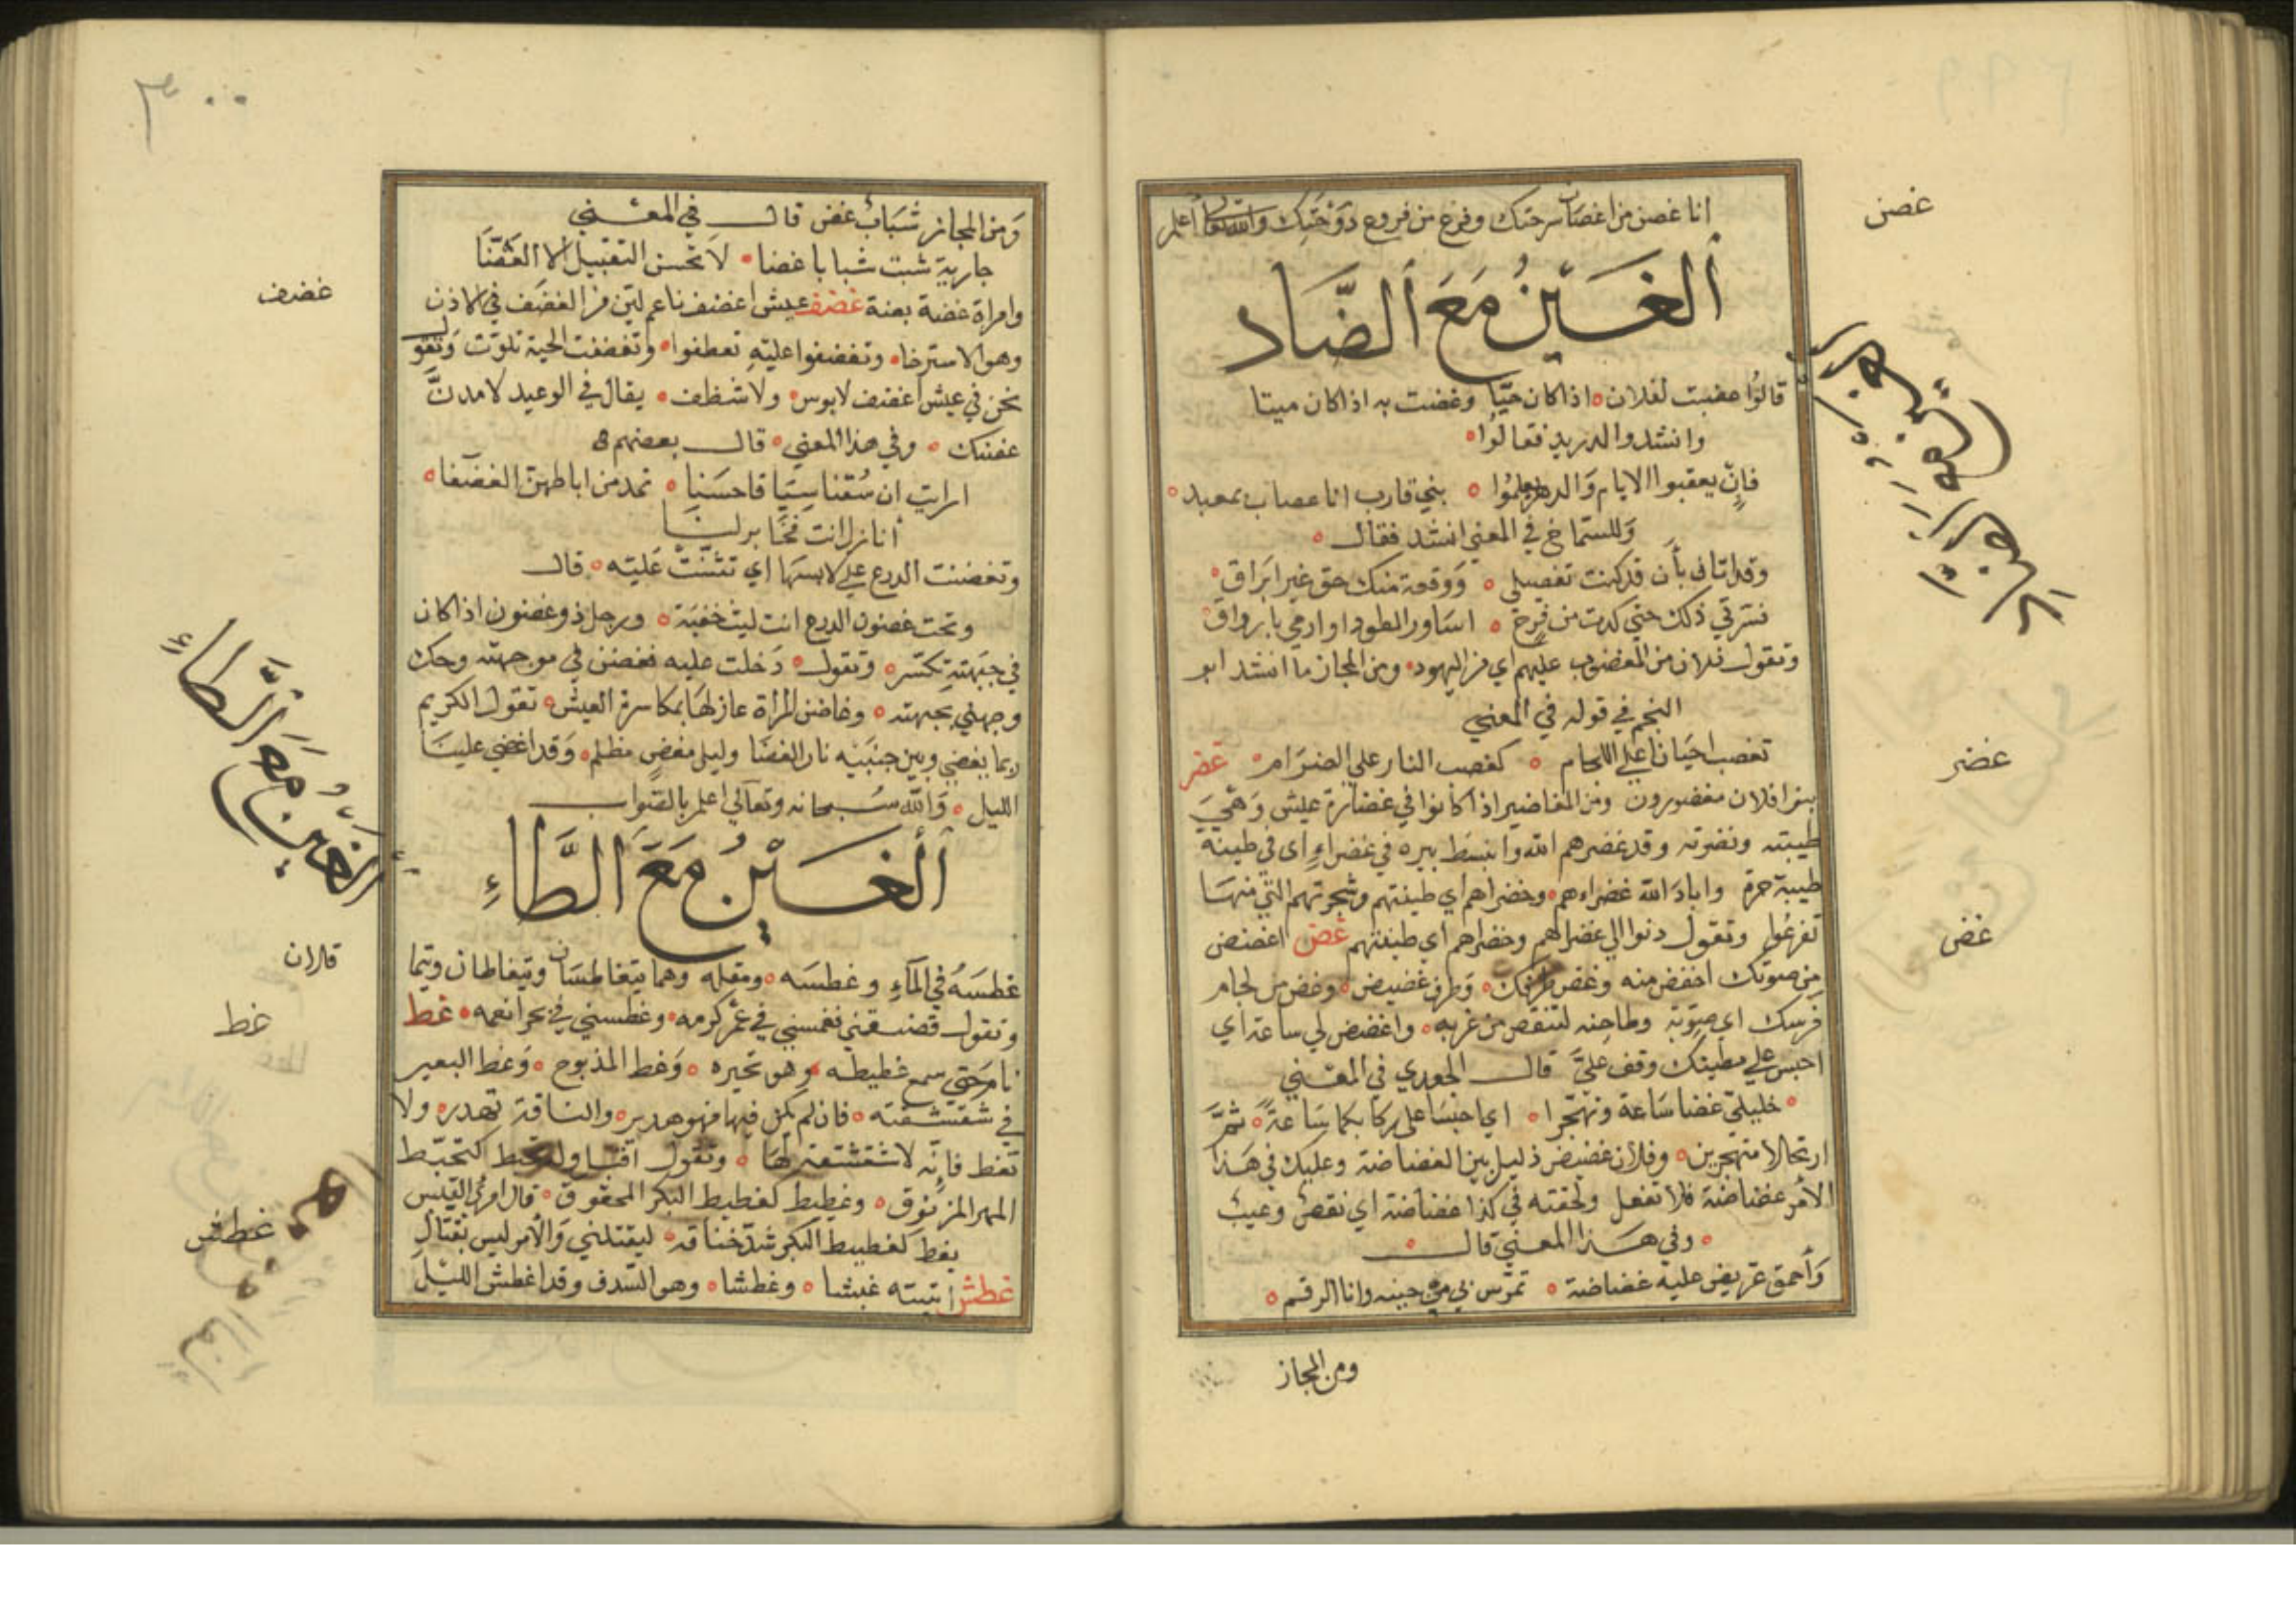 انا غصن من اغصان سرحتك وفرع من فروع دَوْحَتِك والله تعالى أعلم
ألغَسَيْنُ مَعَ ألضَّاد
قالوُا غضبت لفلان اذا كان حَيًّا وغضبت به اذا كان ميتا
وانشدوا لدريد فقالوُا
فإنْ يعقبوا الايام وَالدهر يعلموُا بني قارب انا غصاب بمعبد
وَللشماخ في المعني انشد فقال
وقد اتاني بأَن قد كنت تغضبلي وَوقعة منك حق غير ابَراقِ
فسَرّني ذلك حتي كدت من فرح اسَاور الطود او ارمي بأرواق
وتقول فلان من المغضوب عليهم اي من اليهود ومن المجاز ما انشد ابو
النجم في قوله في المعني
تغضب احيَانا علي اللجام كغضب النار علي الضرَام غضر
بنوا فلان مغضورون ومن المغاضير اذا كانوا في غضارة عيش وَهيَ
طيبته ونضرته وقد غضرهم الله وانبسَط بيره في غضراءِ اى في طينة
طيبة حرة وابادَ الله غضراءهم وخضراهم اي طينتهم وشجرتهم التي منهَا
تفرعُوا وتقول دنوا الي غضرائهم وخضراهم اي طينتهم غض اغضض
من صوتك اخفض منه وغض طرفك وَطرف غضيض وغض من لجام
فرسك اي صوّبه وطامنه لتنقص من غربه واغضض لي ساعة اي
احبس علي مطيتك وقف عليَّ قال الجعدي في المعني
خليليّ غضا سَاعة وتهجّرا اي احبسَا علي ركابكما سَاعة ثمَّ
ارتحلا متهجرين وفلان غضيض ذليل بين الغضاضة وعليك في هَذا
الأمر غضاضة فلا تفعل ولحقته في كذا غضاضة اي نقص وعيبُ
وفي هَذا المعني قال
وَأحمق عريض عليه غضاضة تمرّس بي من حينه وانا الرقم
ومن المجاز
غصن
غضر
غض
٣٠٠
وَمن المجاز شَبَابُ غض قال في المعني
جارية شبت شبابا غضا لا تحسن التقبيل الا العَضّا
وامراة غضة بضة غضف عيش اغضف ناعم لين من الغضَف في الاذن
وهو الاسترخا وتغضفوا عليْهِ تعطفوا وتغضفت الحية تلوّت وَتقول
نحن في عيش اغضف لابوس ولا شظف يقال في الوعيد لامدنَّ
غضنك وفي هذا المعني قال بعضهم
ارايت ان سُقنا سيَاقا حسَنا تمد من اباطهن الغضَنا
أنازل انت فخابر لنا
وتغضنت الدرع علي لابسهَا اي تثنّتْ عَليْه قال
وتحت غضون الدرع انت ليث خفيَة ورجل ذو غضون اذا كان
في جبَهته تكسّر وتقول دَخلت عليه فغضن لي من جبهته وحك
وجهني بجبهته وغاضن المراة عازلهَا بمكاسرة العيش تقول الكريم
ربما يغضي وبين جنبَيْه نار الغضَا وليل مغضٍ مظلم وَقد اغضي علينَا
الليل وَالله سُبحانه وتعآلي اعلم بالصّواب
ألغَسَيْنُ مَعَ الطَّاءِ
غطسَهُ في المآءِ وغطسَه ومقله وهما يتغاطسَان ويتغاطان ويتما
قلان
وتقول فغمسني في غمر كرمه وغطسني في بحر انعمه غط
نام حَتي سمع غطيطه وهو نخيره وَغط المذبوح وَغط البعير
في شقشقته فان لم يكن فيها فهو هدير والناقة تهدر ولا
تغط فإنّه لا شقشقة لهَا وتقول كتخبّط
المهر المزنوق وغطيط كغطيط البكر المخنوق قال امرئ القيْس
يغط كغطيط البكر شدّ خناقه ليقتلني وَالأمر ليس بقتّالِ
غطش أتيته غبشا وغطشا وهو السّدف وقد اغطش الليْل
غضف
غط
غطش
الغَيْنُ مَعَ الطَّاءِ